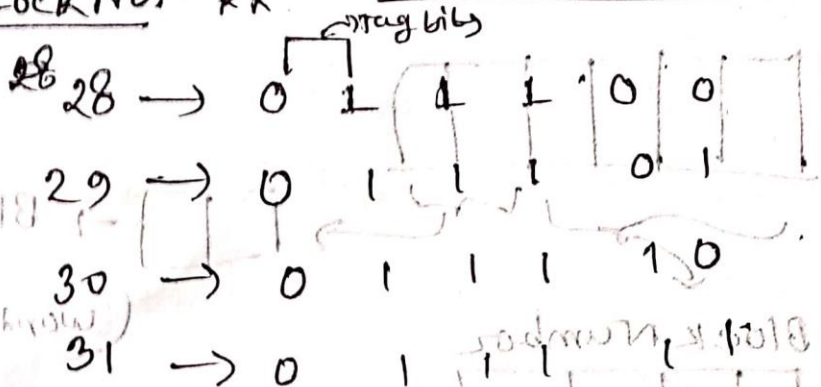 Tag bits
28 28 → 0 1 1 1 0 0
29 → 0 1 1 1 0 1
30 → 0 1 1 1 1 0
31 → 0 1 1 1 1 1